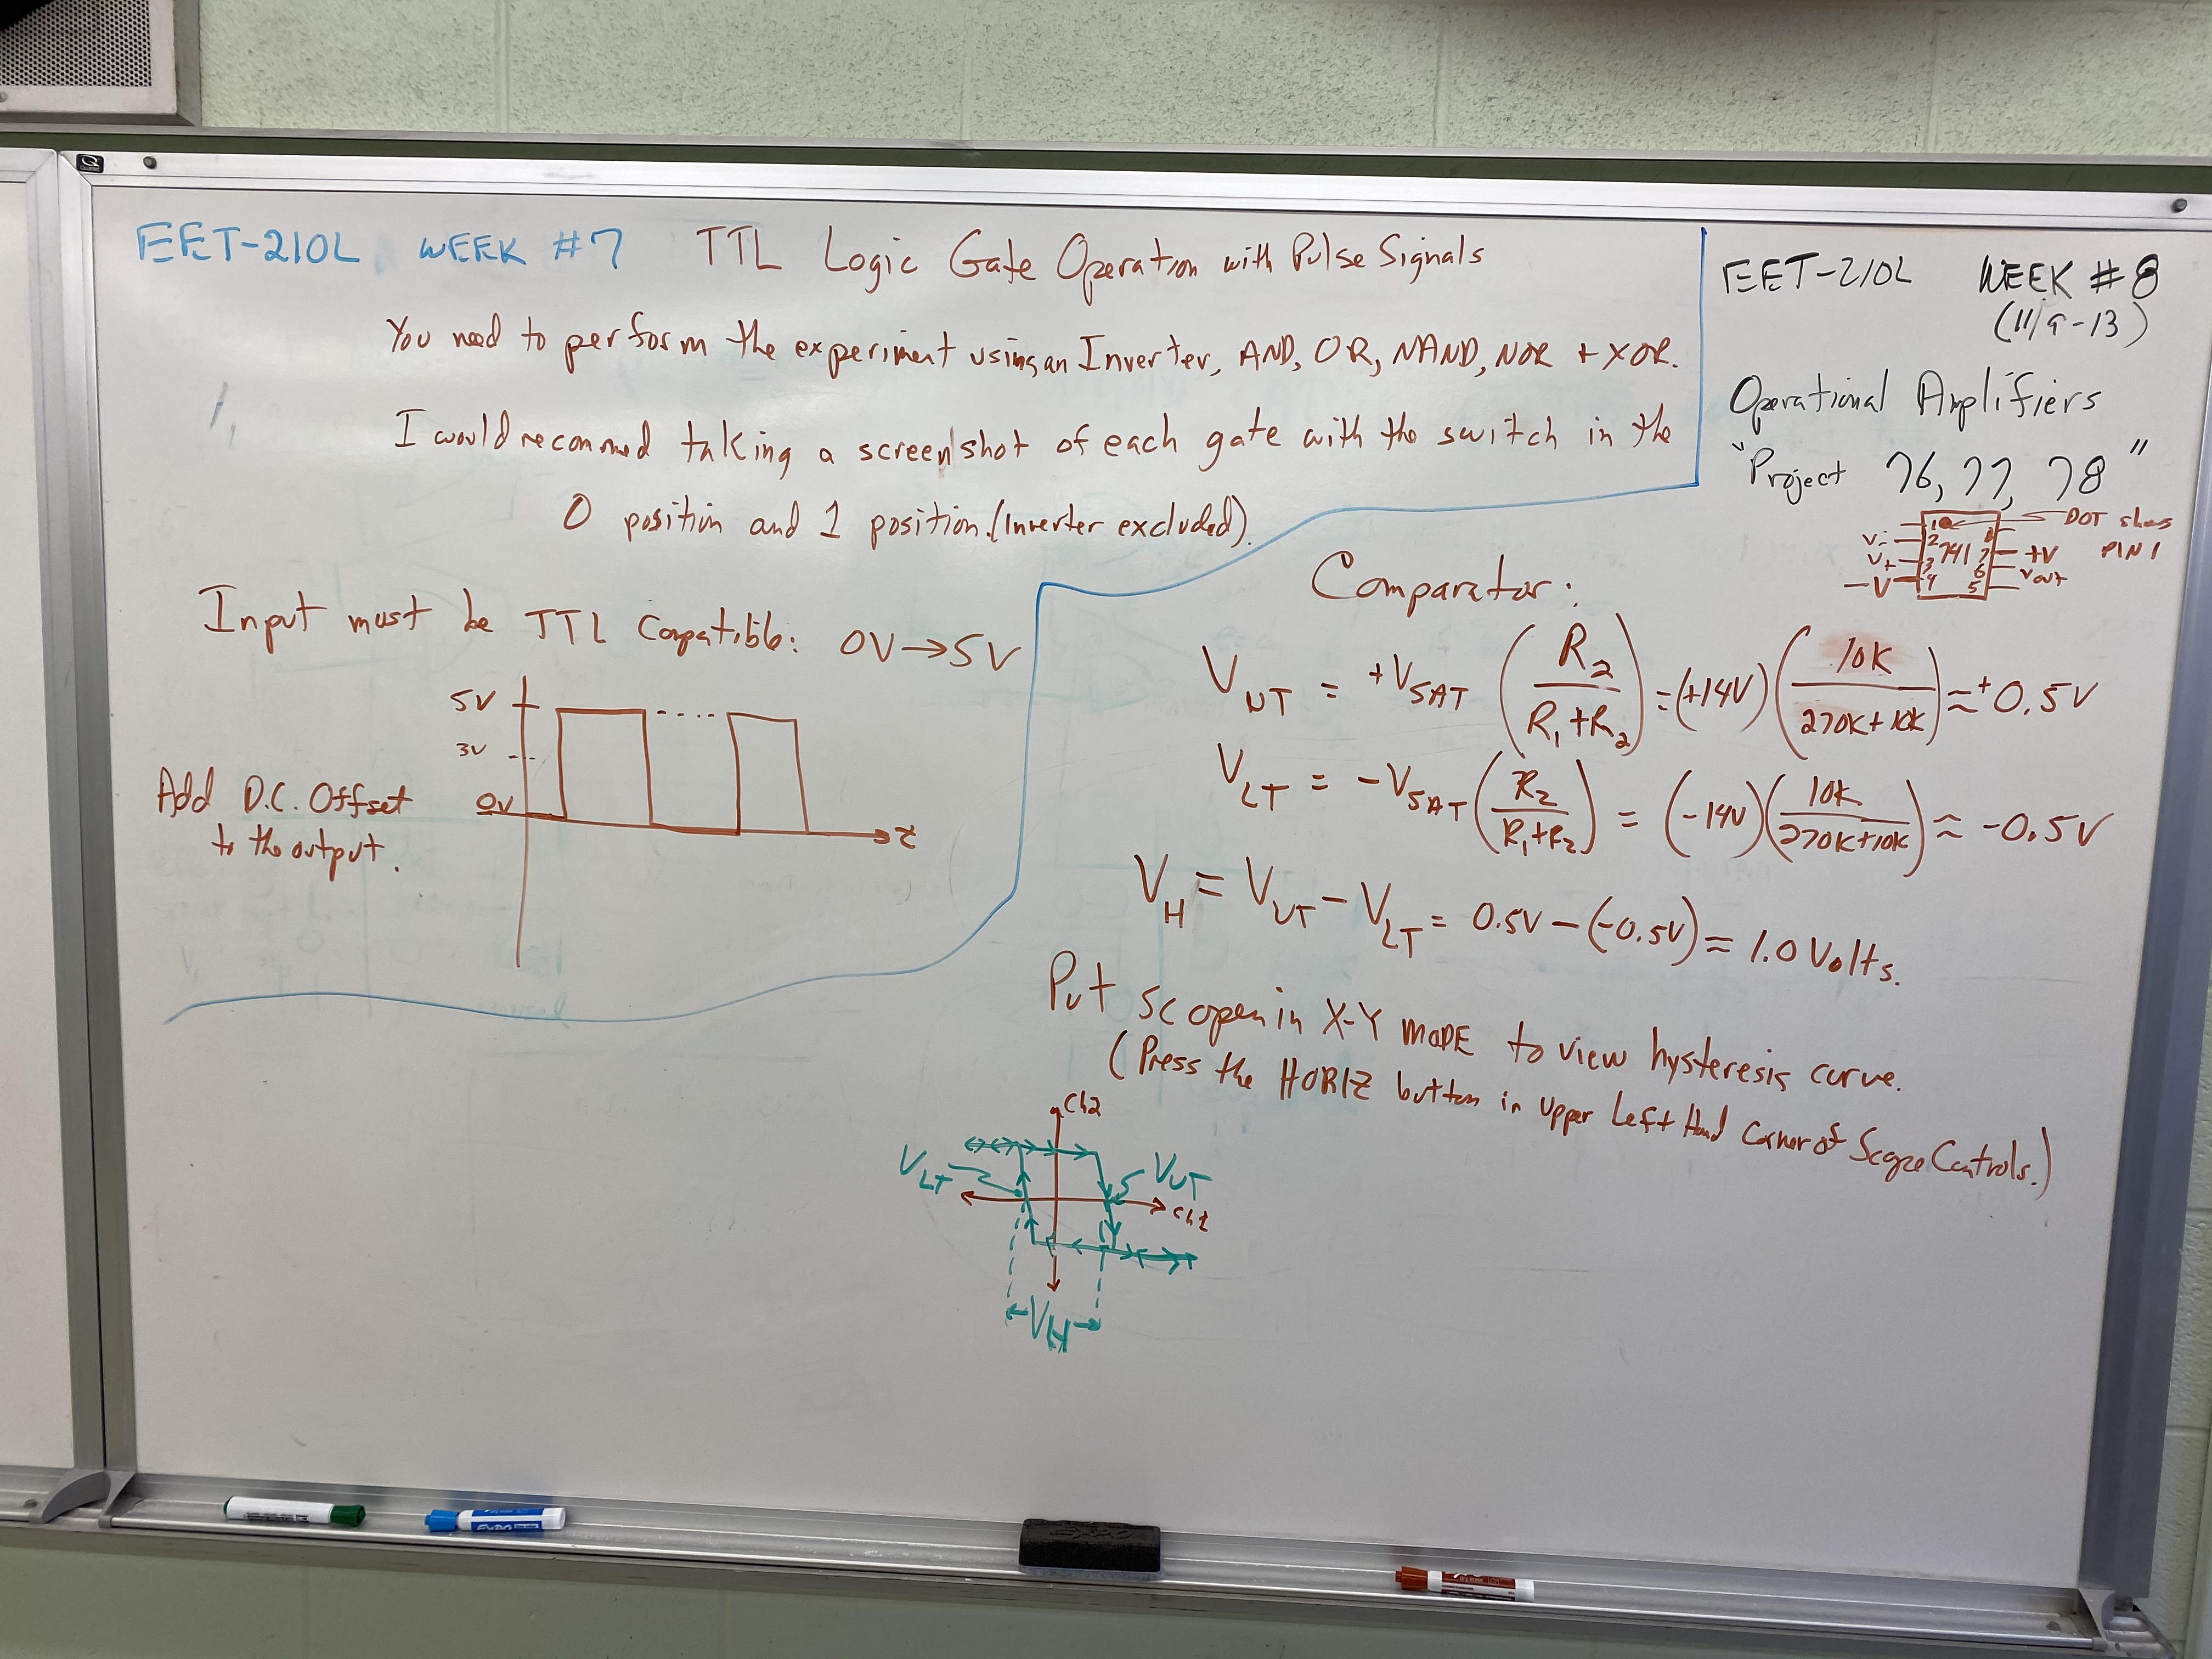 EET-210L WEEK #7 TTL Logic Gate Operation with Pulse Signals
You need to perform the experiment using an Inverter, AND, OR, NAND, NOR + XOR.
I would recommed taking a screenshot of each gate with the switch in the
0 position and 1 position. (Inverter excluded).
Input must be TTL Compatible: 0V→5V
5V
3V
0V
t
Add D.C. Offset
to the output.
EET-210L WEEK #8
(11/9-13)
Operational Amplifiers
"Project 76, 77, 78"
DOT shows
PIN 1
1 8
V- 2 741 7 +V
V+ 3 6 Vout
-V 4 5
Comparator:
V_UT = +V_SAT (R2/(R1+R2)) = (+14V)(10K/(270K+10K)) ≈ +0.5V
V_LT = -V_SAT (R2/(R1+R2)) = (-14V)(10K/(270K+10K)) ≈ -0.5V
V_H = V_UT - V_LT = 0.5V - (-0.5V) ≈ 1.0 Volts.
Put scopen in X-Y MODE to view hysteresis curve.
(Press the HORIZ button in upper Left Hand Corner of Scope Controls.)
Ch2
V_LT
V_UT
ch1
V_H
EXPO